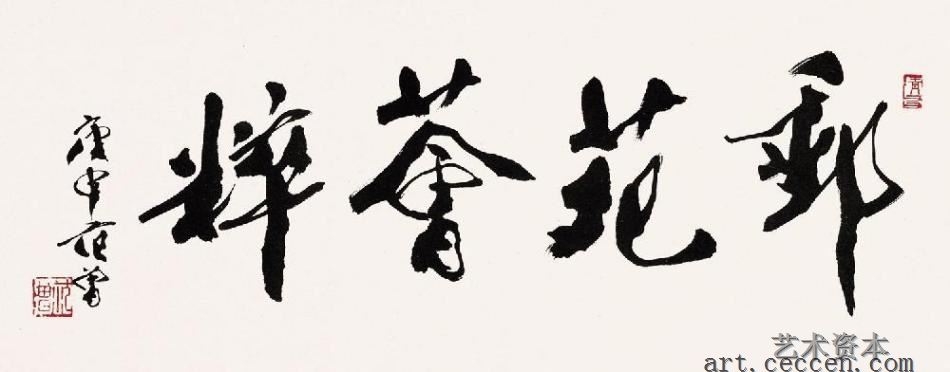 郵苑薈粹
庚申 范曾
艺术资本
art.ceccen.com